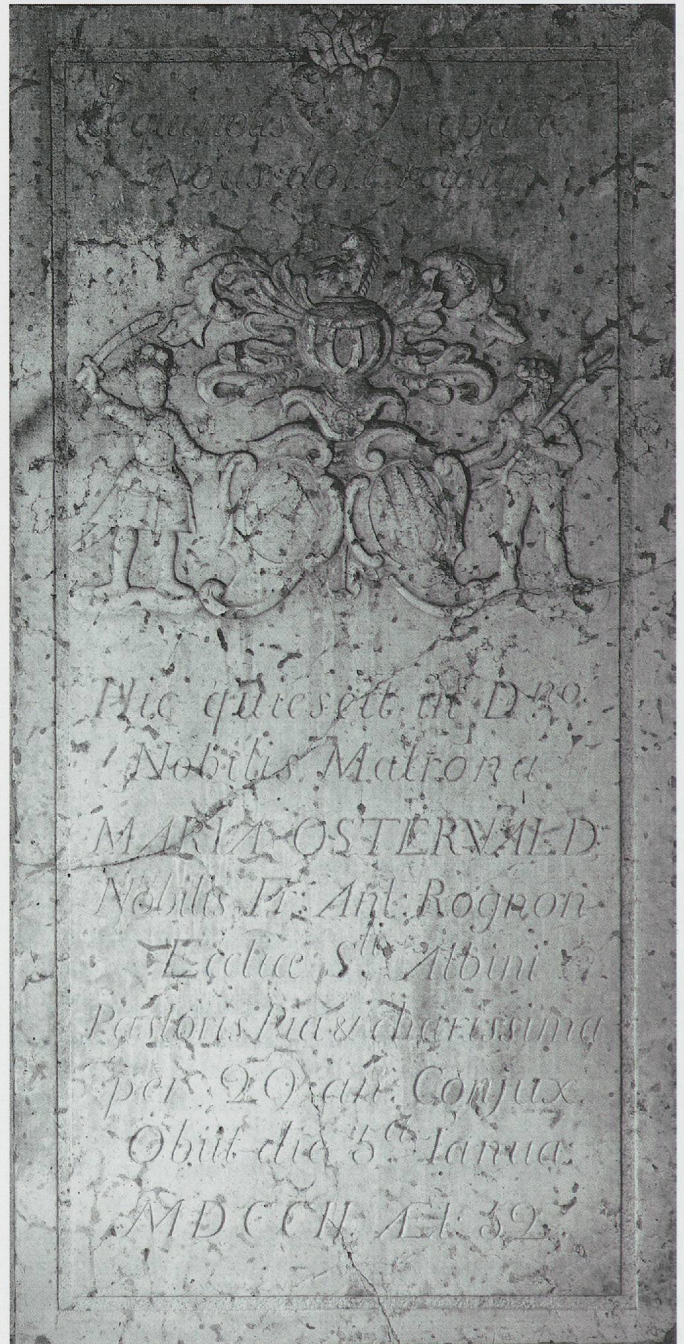 Nous doit reunir
Hic quiescit in Dno
Nobilis Matrona
MARIA OSTERVALD
Nobilis Fr: Ant: Rognon
Eccliæ Sti Albini
Pastoris Pia & charissima
per 20 an: Conjux
Obiit die 5a Ianua:
MDCCII Æt: 52